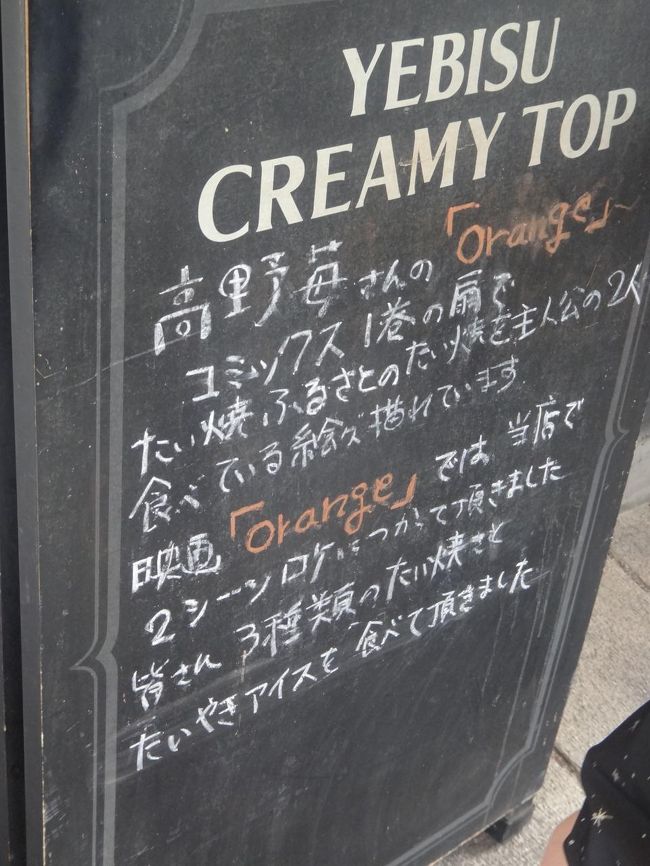 YEBISU
CREAMY TOP
高野苺さんの「orange」〜
コミックス1巻の扇で
たい焼ふるさとのたい焼を主人公の2人
食べている絵が描れています
映画「orange」では 当店で
2シーンロケにつかって頂きました
皆さん 3種類のたい焼きと
たいやきアイスを 食べて頂きました